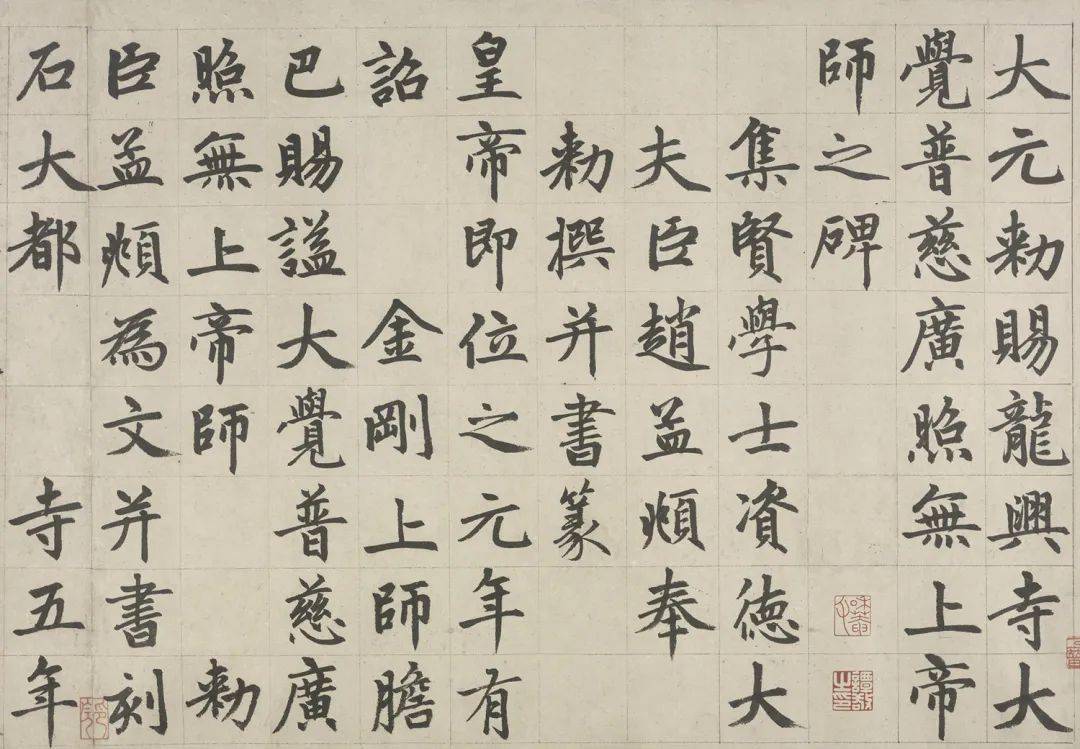 大元勅賜龍興寺大
覺普慈廣照無上帝
師之碑
集賢學士資德大
夫臣趙孟頫奉
勅撰并書篆
皇帝即位之元年有
詔金剛上師膽
巴賜謚大覺普慈廣
照無上帝師勅
臣孟頫為文并書刻
石大都寺五年